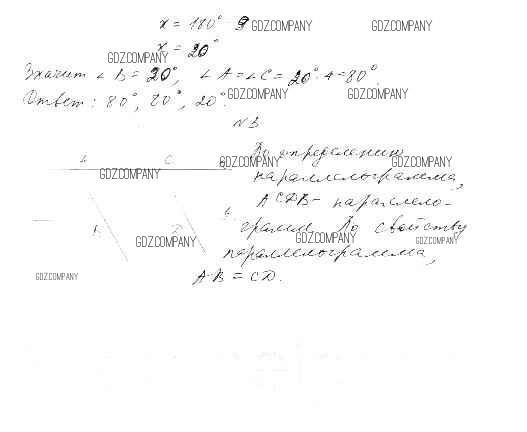 x = 180° - 9 GDZ.COMPANY GDZ.COMPANY
x = 20°
GDZ.COMPANY
Значит ∠B = 20°, ∠A = ∠C = 20° · 4 = 80°.
GDZ.COMPANY GDZ.COMPANY
Ответ: 80°, 80°, 20°.
N 3
A C a По определению
GDZ.COMPANY GDZ.COMPANY
GDZ.COMPANY параллелограмма,
ACDB - паралело-
B D б грамм. По свойству
GDZ.COMPANY GDZ.COMPANY GDZ.COMPANY
параллелограмма,
GDZ.COMPANY AB = CD.